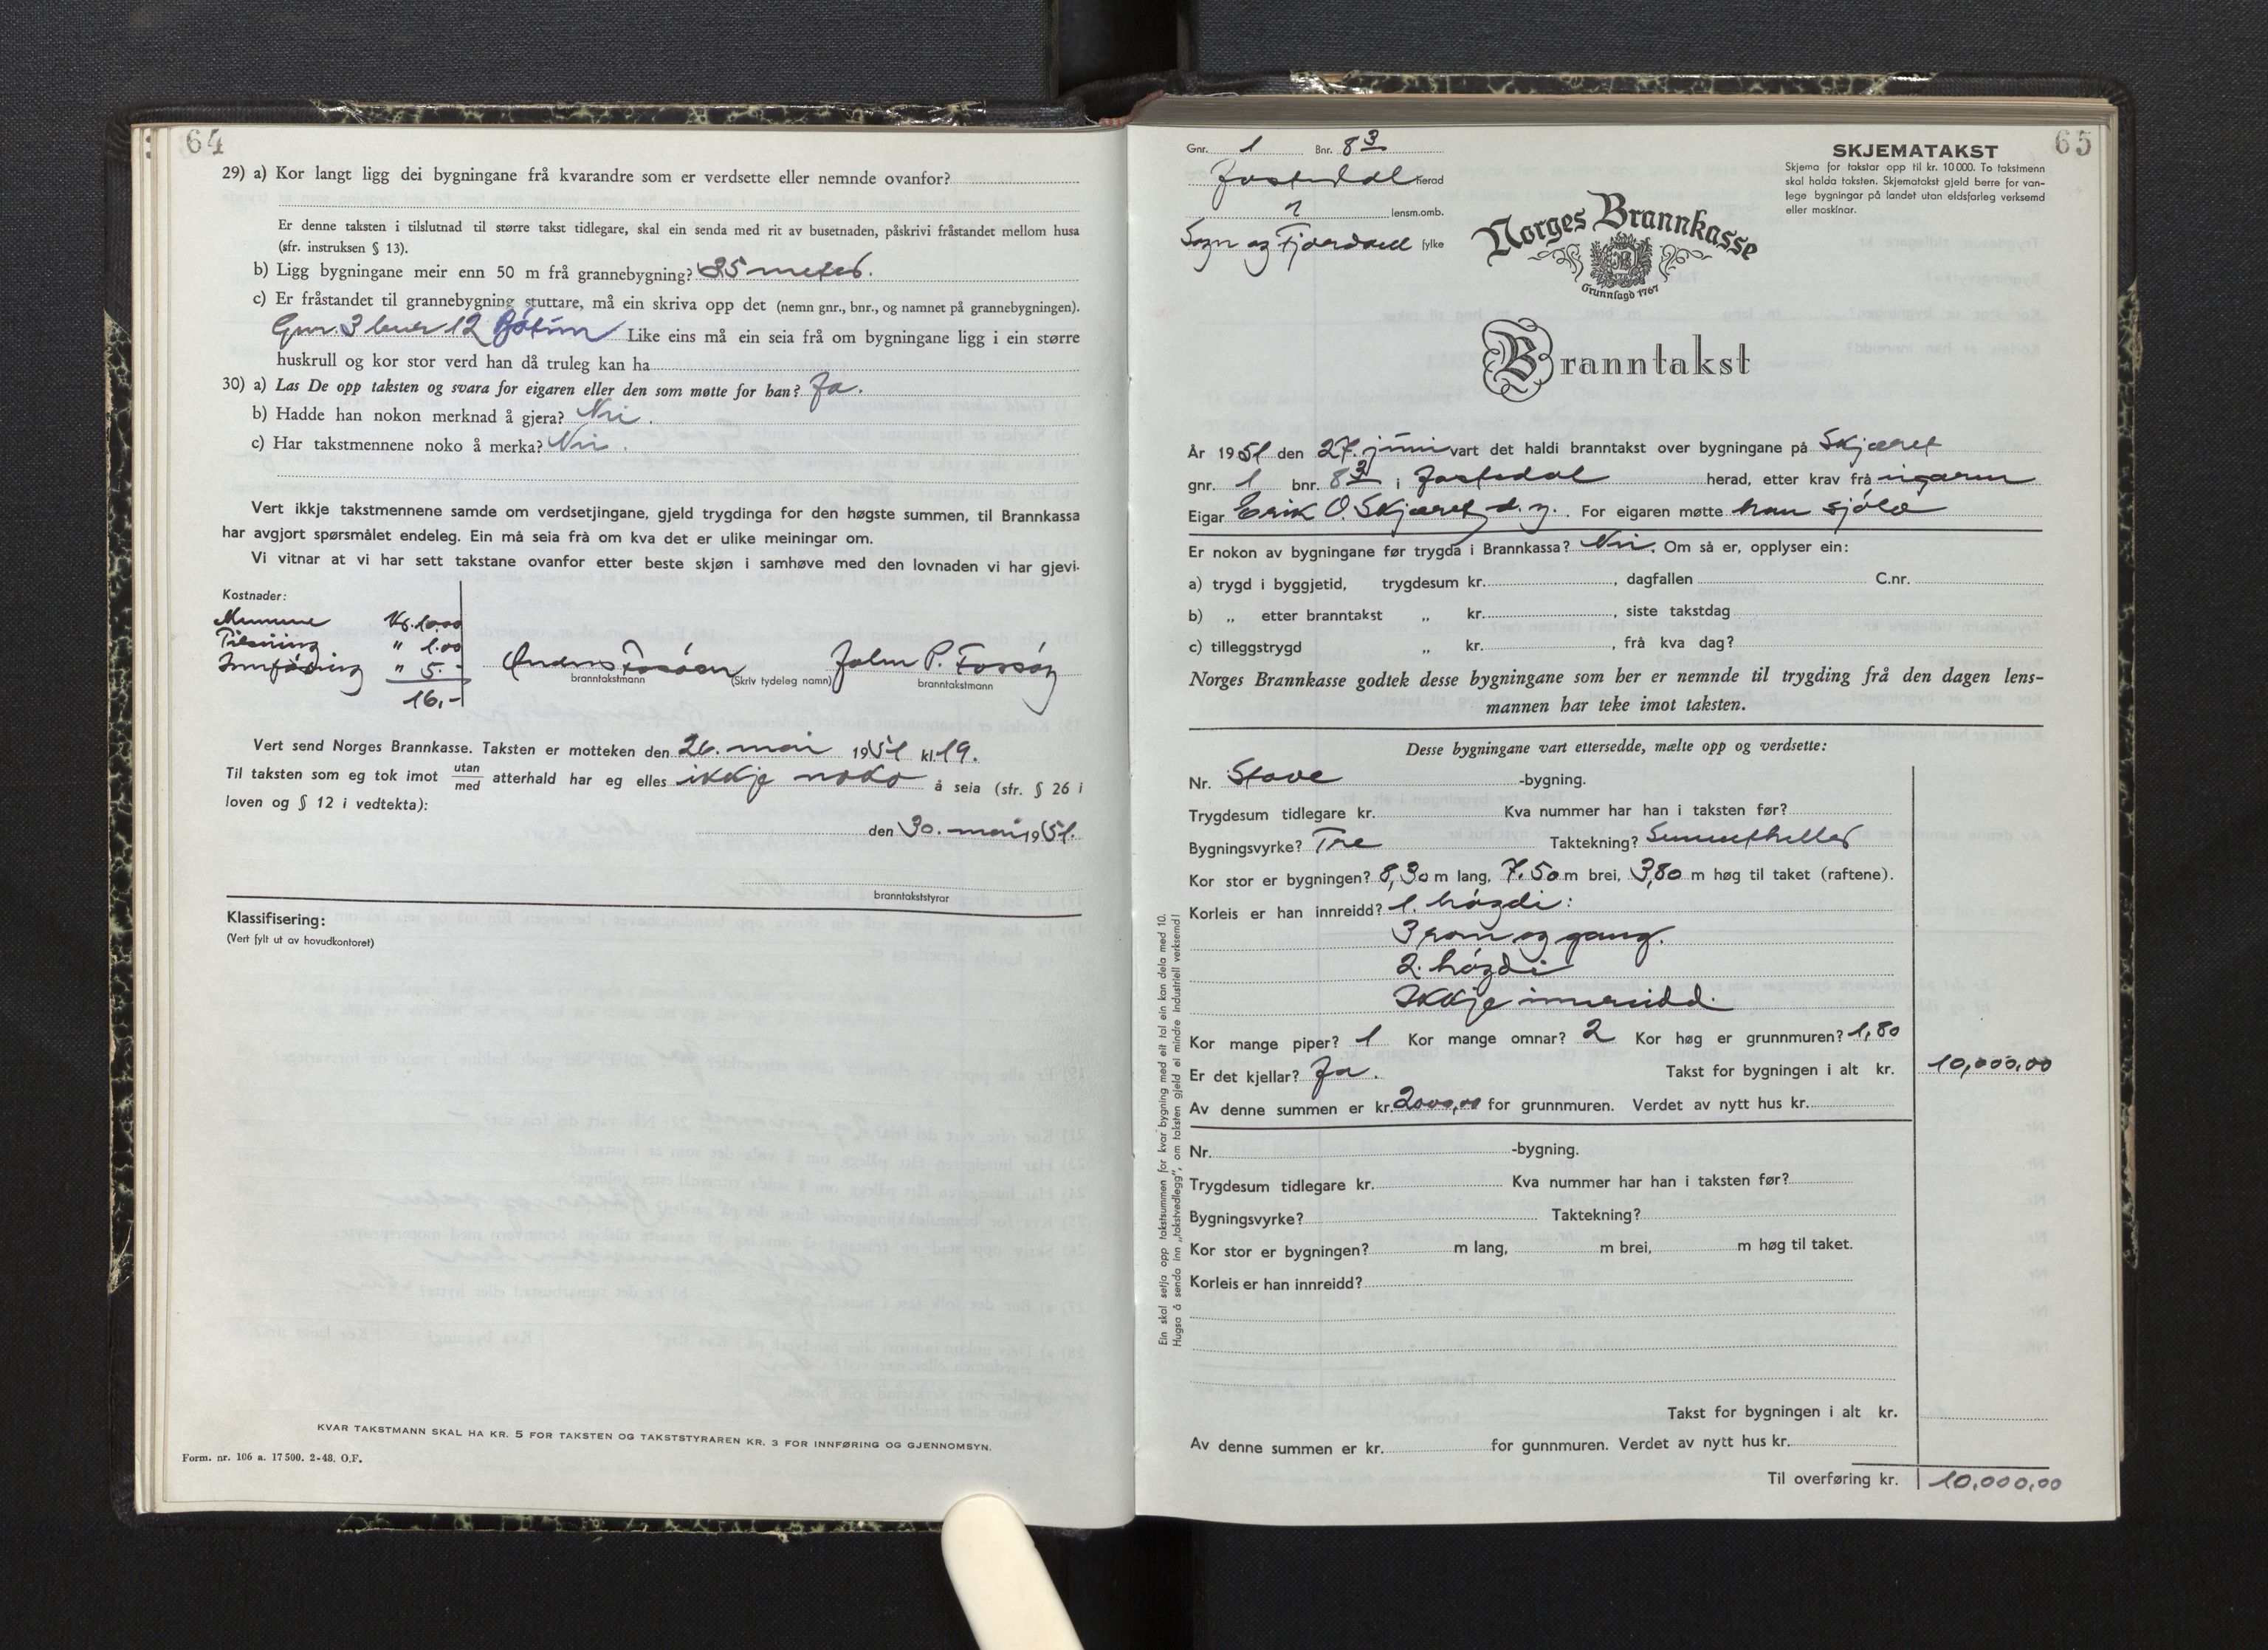 64
29) a) Kor langt ligg dei bygningane frå kvarandre som er verdsette eller nemnde ovanfor?
Er denne taksten i tilslutnad til større takst tidlegare, skal ein senda med rit av busetnaden, påskrivi fråstandet mellom husa
(sfr. instruksen § 13).
b) Ligg bygningane meir enn 50 m frå grannebygning? 35 meter.
c) Er fråstandet til grannebygning stuttare, må ein skriva opp det (nemn gnr., bnr., og namnet på grannebygningen).
Gnr. 3 bnr 12 Bøtun Like eins må ein seia frå om bygningane ligg i ein større
huskrull og kor stor verd han då truleg kan ha
30) a) Las De opp taksten og svara for eigaren eller den som møtte for han? Ja.
b) Hadde han nokon merknad å gjera? Nei.
c) Har takstmennene noko å merka? Nei.
Vert ikkje takstmennene samde om verdsetjingane, gjeld trygdinga for den høgste summen, til Brannkassa
har avgjort spørsmålet endeleg. Ein må seia frå om kva det er ulike meiningar om.
Vi vitnar at vi har sett takstane ovanfor etter beste skjøn i samhøve med den lovnaden vi har gjevi.
Kostnader:
Mennene Kr. 10.00
" 1.00
Innføring " 5.-
16,-
Anders Fossøen John P. Fossøy
branntakstmann (Skriv tydeleg namn) branntakstmann
Vert send Norges Brannkasse. Taksten er motteken den 26. mai 1951 kl. 19.
Til taksten som eg tok imot utan/med atterhald har eg elles ikkje noko å seia (sfr. § 26 i
loven og § 12 i vedtekta):
den 30. mai 1951.
branntakststyrar
Klassifisering:
(Vert fylt ut av hovudkontoret)
KVAR TAKSTMANN SKAL HA KR. 5 FOR TAKSTEN OG TAKSTSTYRAREN KR. 3 FOR INNFØRING OG GJENNOMSYN.
Form. nr. 106 a. 17 500. 2-48. O.F.
65
Gnr. 1 Bnr. 83
Jostedal herad
lensm.omb.
Sogn og Fjordane fylke
SKJEMATAKST
Skjema for takstar opp til kr. 10 000. To takstmenn
skal halda taksten. Skjematakst gjeld berre for van-
lege bygningar på landet utan eldsfarleg verksemd
eller maskinar.
Norges Brannkasse
Grunnlagd 1767
Branntakst
År 1951 den 27. juni vart det haldi branntakst over bygningane på Skjæret
gnr. 1 bnr. 83 i Jostedal herad, etter krav frå eigaren
Eigar Erik O. Skjæret d.y. For eigaren møtte han sjølv
Er nokon av bygningane før trygda i Brannkassa? Nei. Om så er, opplyser ein:
a) trygd i byggjetid, trygdesum kr. , dagfallen C.nr.
b) „ etter branntakst „ kr. , siste takstdag
c) tilleggstrygd „ kr. , frå kva dag?
Norges Brannkasse godtek desse bygningane som her er nemnde til trygding frå den dagen lens-
mannen har teke imot taksten.
Desse bygningane vart ettersedde, mælte opp og verdsette:
Nr. Stove -bygning.
Trygdesum tidlegare kr. Kva nummer har han i taksten før?
Bygningsvyrke? Tre Taktekning? Sementheller
Kor stor er bygningen? 8,30 m lang, 7.50 m brei, 3,80 m høg til taket (raftene).
Korleis er han innreidd? 1. høgdi:
3 rom og gang.
2. høgdi
Ikkje innreidd.
Kor mange piper? 1 Kor mange omnar? 2 Kor høg er grunnmuren? 1,80
Er det kjellar? Ja. Takst for bygningen i alt kr. 10,000,00
Av denne summen er kr. 2000,00 for grunnmuren. Verdet av nytt hus kr.
Nr. -bygning.
Trygdesum tidlegare kr. Kva nummer har han i taksten før?
Bygningsvyrke? Taktekning?
Kor stor er bygningen? m lang, m brei, m høg til taket.
Korleis er han innreidd?
Takst for bygningen i alt kr.
Av denne summen er kr. for gunnmuren. Verdet av nytt hus kr.
Til overføring kr. 10.000,00
Ein skal setja opp takstsummen for kvar bygning med eit tal ein kan dela med 10.
Hugsa å senda inn „takstvedlegg”, om taksten gjeld ei mindre industriell verksemd!